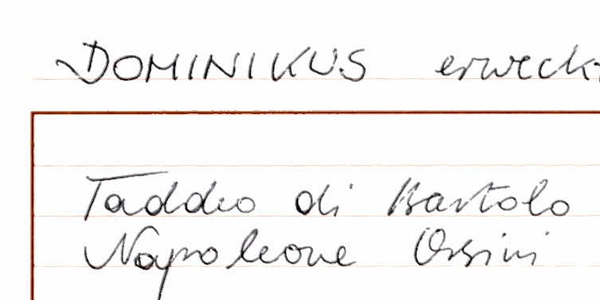 DOMINIKUS erweckt
Taddeo di Bartolo
Napoleone Orsini